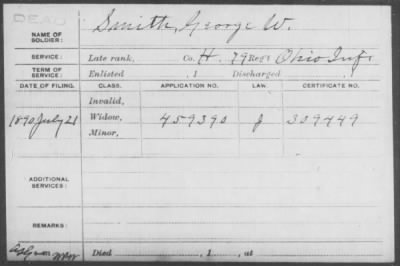 DEAD
NAME OF SOLDIER: Smith, George W.
SERVICE: Late rank, Co. H. 79 Reg't Ohio Inf.
TERM OF SERVICE: Enlisted , 1 Discharged , 1
DATE OF FILING. CLASS. APPLICATION NO. LAW. CERTIFICATE NO.
Invalid,
1890 July 21 Widow, 459390 J 309449
Minor,
ADDITIONAL SERVICES:
REMARKS:
Died , 1 , at